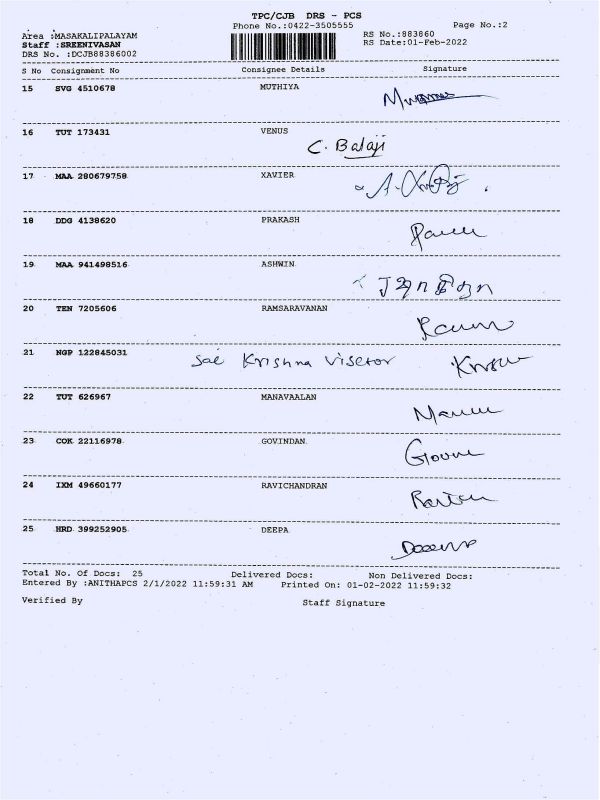 TPC/CJB DRS - PCS
Phone No.:0422-3505555 Page No.:2
Area :MASAKALIPALAYAM RS No.:883860
Staff :SREENIVASAN RS Date:01-Feb-2022
DRS No. :DCJB88386002
S No Consignment No Consignee Details Signature
15 SVG 4510678 MUTHIYA
16 TUT 173431 VENUS
C. Balaji
17 MAA 280679758 XAVIER
18 DDG 4138620 PRAKASH
19 MAA 941498516 ASHWIN
20 TEN 7205606 RAMSARAVANAN
21 NGP 122845031 Sai Krishna Visetor
22 TUT 626967 MANAVAALAN
23 COK 22116978 GOVINDAN
24 IXM 49660177 RAVICHANDRAN
25 HRD 399252905 DEEPA
Total No. Of Docs: 25 Delivered Docs: Non Delivered Docs:
Entered By :ANITHAPCS 2/1/2022 11:59:31 AM Printed On: 01-02-2022 11:59:32
Verified By Staff Signature